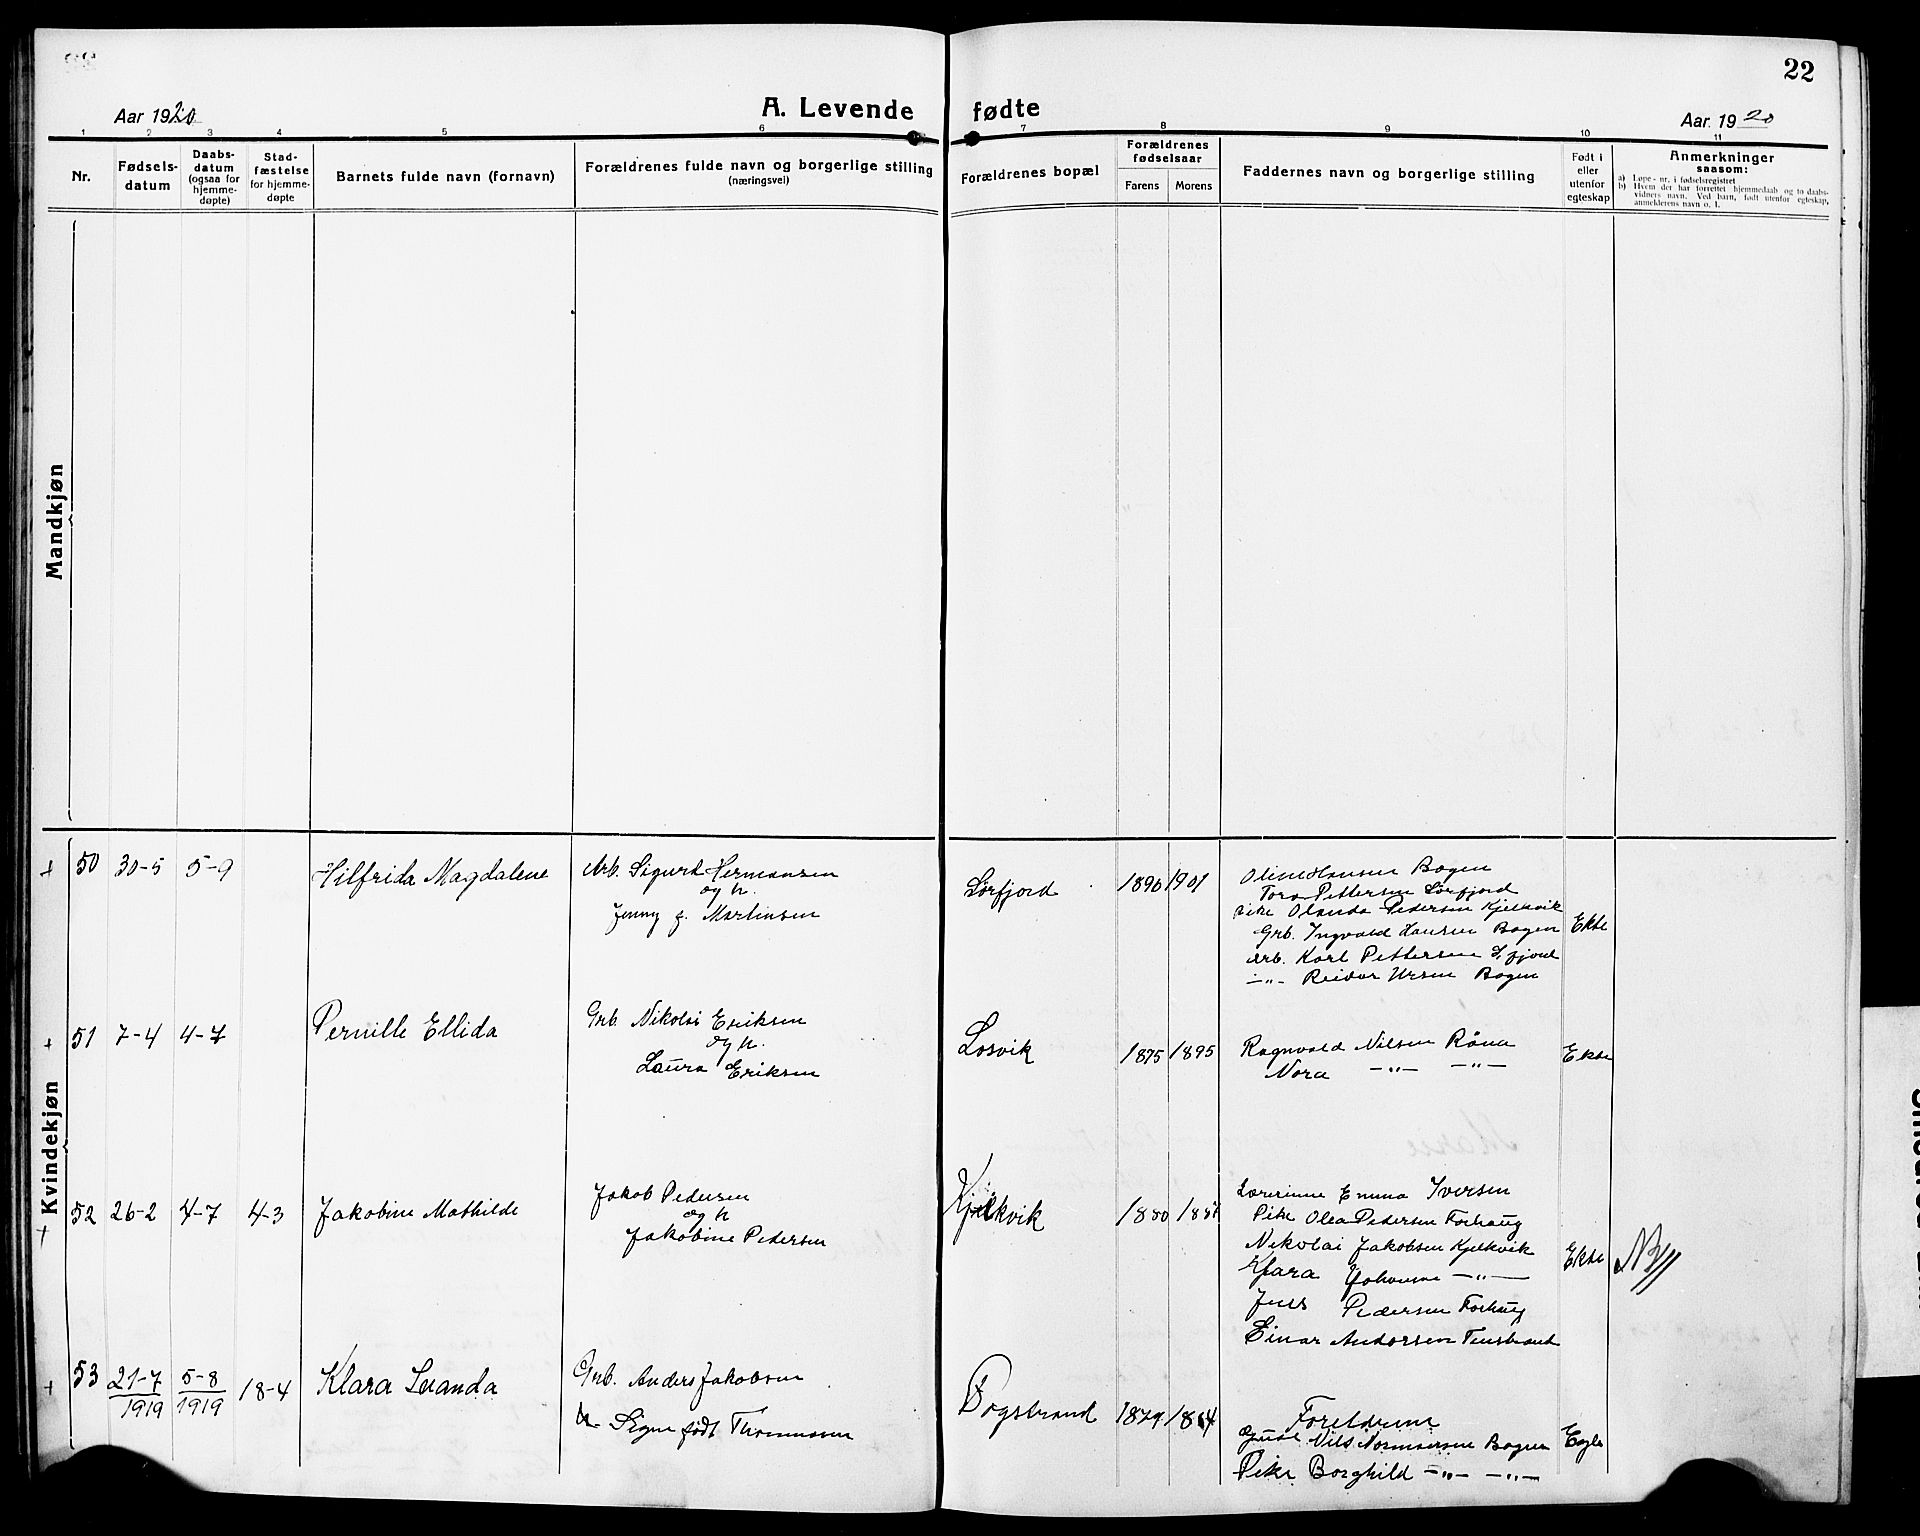 22
Aar 1920
A. Levende
fødte
Aar. 1920
1 2 3 4 5 6 7 8 9 10 11
Nr.
Fødsels-
datum
Daabs-
datum
(ogsaa for
hjemme-
døpte)
Stad-
fæstelse
for hjemme-
døpte
Barnets fulde navn (fornavn)
Forældrenes fulde navn og borgerlige stilling
(næringsvei)
Forældrenes bopæl
Forældrenes
fødselsaar
Farens
Morens
Faddernes navn og borgerlige stilling
Født i
eller
utenfor
egteskap
Anmerkninger
saasom:
a) Løpe-nr. i fødselsregistret
b) Hvem der har forrettet hjemmedaab og to daabs-
vidners navn. Ved barn, født utenfor egteskap,
anmelderens navn o. l.
Mandkjøn
Kvindekjøn
+ 50 30-5 5-9
Hilfrida Magdalene
Arb. Sigurd Hermansen
og h.
Jenny f. Martinsen
Sørfjord
1890 1901
Hansen Bogen
Tora Pettersen Sørfjord
Pedersen Kjelkvik
Grb. Ingvald Hansen Bogen
Arb. Karl Pettersen S.fjord
-"- Reidar Bogen
Ekte
+ 51 7-4 4-7
Pernille Ellida
Grb. Nikolai Eriksen
og h.
Laura Eriksen
Losvik
1875 1895
Ragnvald Nilsen Röna
Nora -"- -"-
Ekte
+ 52 26-2 4-7 4-3
Jakobine Mathilde
Jakob Pedersen
og h
Jakobine Pedersen
Kjelkvik
1880
Lærerinne Emma Iversen
Pike Olea Pedersen Forhaug
Nikolai Jakobsen Kjelkvik
Klara Johansen -"-
Jens Pedersen Forhaug
Einar Andorsen
Ekte
NB//
+ 53 21-7
1919
5-8
1919
18-4
Klara Leanda
Grb. Anders Jakobsen
h. Signe født Thommasen
Fogstrand
1879
Foreldrene
Nils Bogen
Pike Borghild -"- -"-